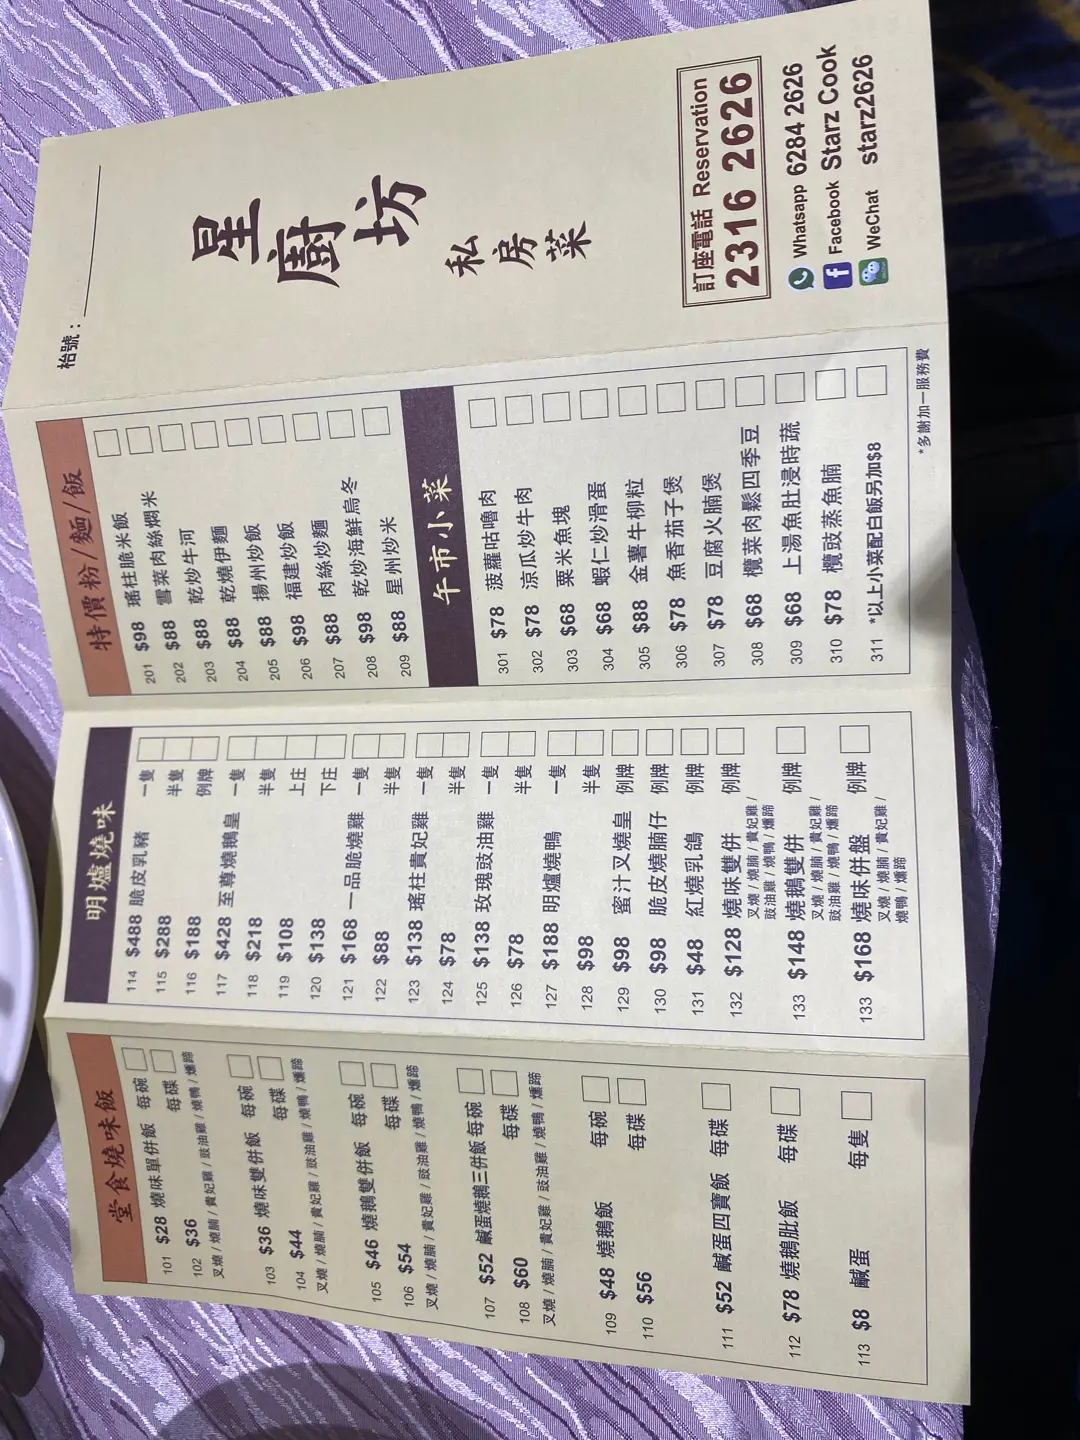 堂食燒味飯
101 $28 燒味單併飯 每碗
102 $36 每碟
叉燒 / 燒腩 / 貴妃雞 / 豉油雞 / 燒鴨 / 燻蹄
103 $36 燒味雙併飯 每碗
104 $44 每碟
叉燒 / 燒腩 / 貴妃雞 / 豉油雞 / 燒鴨 / 燻蹄
105 $46 燒鵝雙併飯 每碗
106 $54 每碟
叉燒 / 燒腩 / 貴妃雞 / 豉油雞 / 燒鴨 / 燻蹄
107 $52 鹹蛋燒鵝三併飯 每碗
108 $60 每碟
叉燒 / 燒腩 / 貴妃雞 / 豉油雞 / 燒鴨 / 燻蹄
109 $48 燒鵝飯 每碗
110 $56 每碟
111 $52 鹹蛋四寶飯 每碟
112 $78 燒鵝肶飯 每碟
113 $8 鹹蛋 每隻
明爐燒味
114 $488 脆皮乳豬 一隻
115 $288 半隻
116 $188 例牌
117 $428 至尊燒鵝皇 一隻
118 $218 半隻
119 $108 上庄
120 $138 下庄
121 $168 一品脆燒雞 一隻
122 $88 半隻
123 $138 瑤柱貴妃雞 一隻
124 $78 半隻
125 $138 玫瑰豉油雞 一隻
126 $78 半隻
127 $188 明爐燒鴨 一隻
128 $98 半隻
129 $98 蜜汁叉燒皇 例牌
130 $98 脆皮燒腩仔 例牌
131 $48 紅燒乳鴿 例牌
132 $128 燒味雙併 例牌
叉燒 / 燒腩 / 貴妃雞 /
豉油雞 / 燒鴨 / 燻蹄
133 $148 燒鵝雙併 例牌
叉燒 / 燒腩 / 貴妃雞 /
豉油雞 / 燒鴨 / 燻蹄
133 $168 燒味併盤 例牌
叉燒 / 燒腩 / 貴妃雞 /
燒鴨 / 燻蹄
特價粉/麵/飯
201 $98 瑤柱脆米飯
202 $88 雪菜肉絲燜米
203 $88 乾炒牛河
204 $88 乾燒伊麵
205 $88 揚州炒飯
206 $98 福建炒飯
207 $88 肉絲炒麵
208 $98 乾炒海鮮烏冬
209 $88 星州炒米
午市小菜
301 $78 菠蘿咕嚕肉
302 $78 涼瓜炒牛肉
303 $68 粟米魚塊
304 $68 蝦仁炒滑蛋
305 $88 金薯牛柳粒
306 $78 魚香茄子煲
307 $78 豆腐火腩煲
308 $68 欖菜肉鬆四季豆
309 $68 上湯魚肚浸時蔬
310 $78 欖豉蒸魚腩
311 *以上小菜配白飯另加$8
*多謝加一服務費
枱號：
星廚坊
私房菜
訂座電話 Reservation
2316 2626
Whatsapp 6284 2626
Facebook Starz Cook
WeChat starz2626